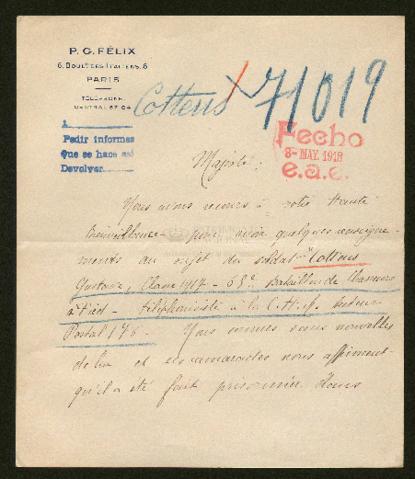 P. G. FÉLIX
6, BOULD DES ITALIENS, 6
PARIS
TÉLÉPHONE
CENTRAL 67-04
Cottens
71019
Pedir informes
Que se hace así
Devolver
Fecho
8- MAY. 1918
e.a.e.
Majesté;
Nous avons recours à votre Haute
bienveillance pour avoir quelques renseigne-
ments au sujet du soldat Cottens
Gustave, Classe 1917 - 68e Bataillon de Chasseurs
à Pied - téléphoniste à la C.H.R. Secteur
Postal 176. Nous sommes sans nouvelles
de lui et ses camarades nous affirment
qu'il a été fait prisonnier. Nous